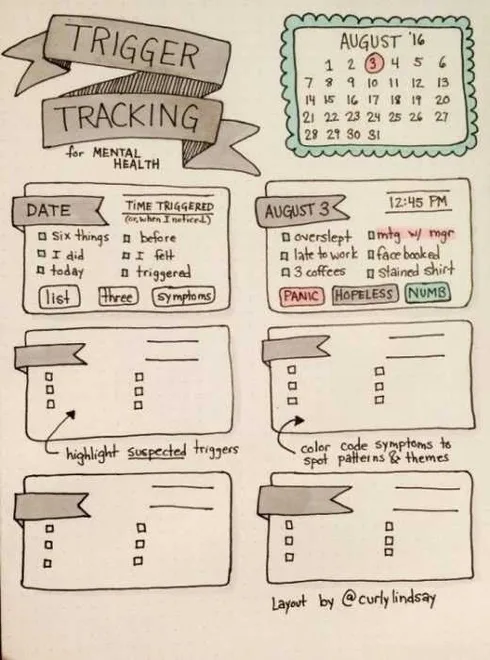 TRIGGER
TRACKING
for MENTAL
HEALTH
AUGUST '16
1 2 3 4 5 6
7 8 9 10 11 12 13
14 15 16 17 18 19 20
21 22 23 24 25 26 27
28 29 30 31
DATE
TIME TRIGGERED
(or, when I noticed)
six things
before
I did
I felt
today
triggered
list
three
symptoms
AUGUST 3
12:45 PM
overslept
mtg w/ mgr
late to work
facebooked
3 coffees
stained shirt
PANIC
HOPELESS
NUMB
highlight suspected triggers
color code symptoms to
spot patterns & themes
Layout by @curlylindsay